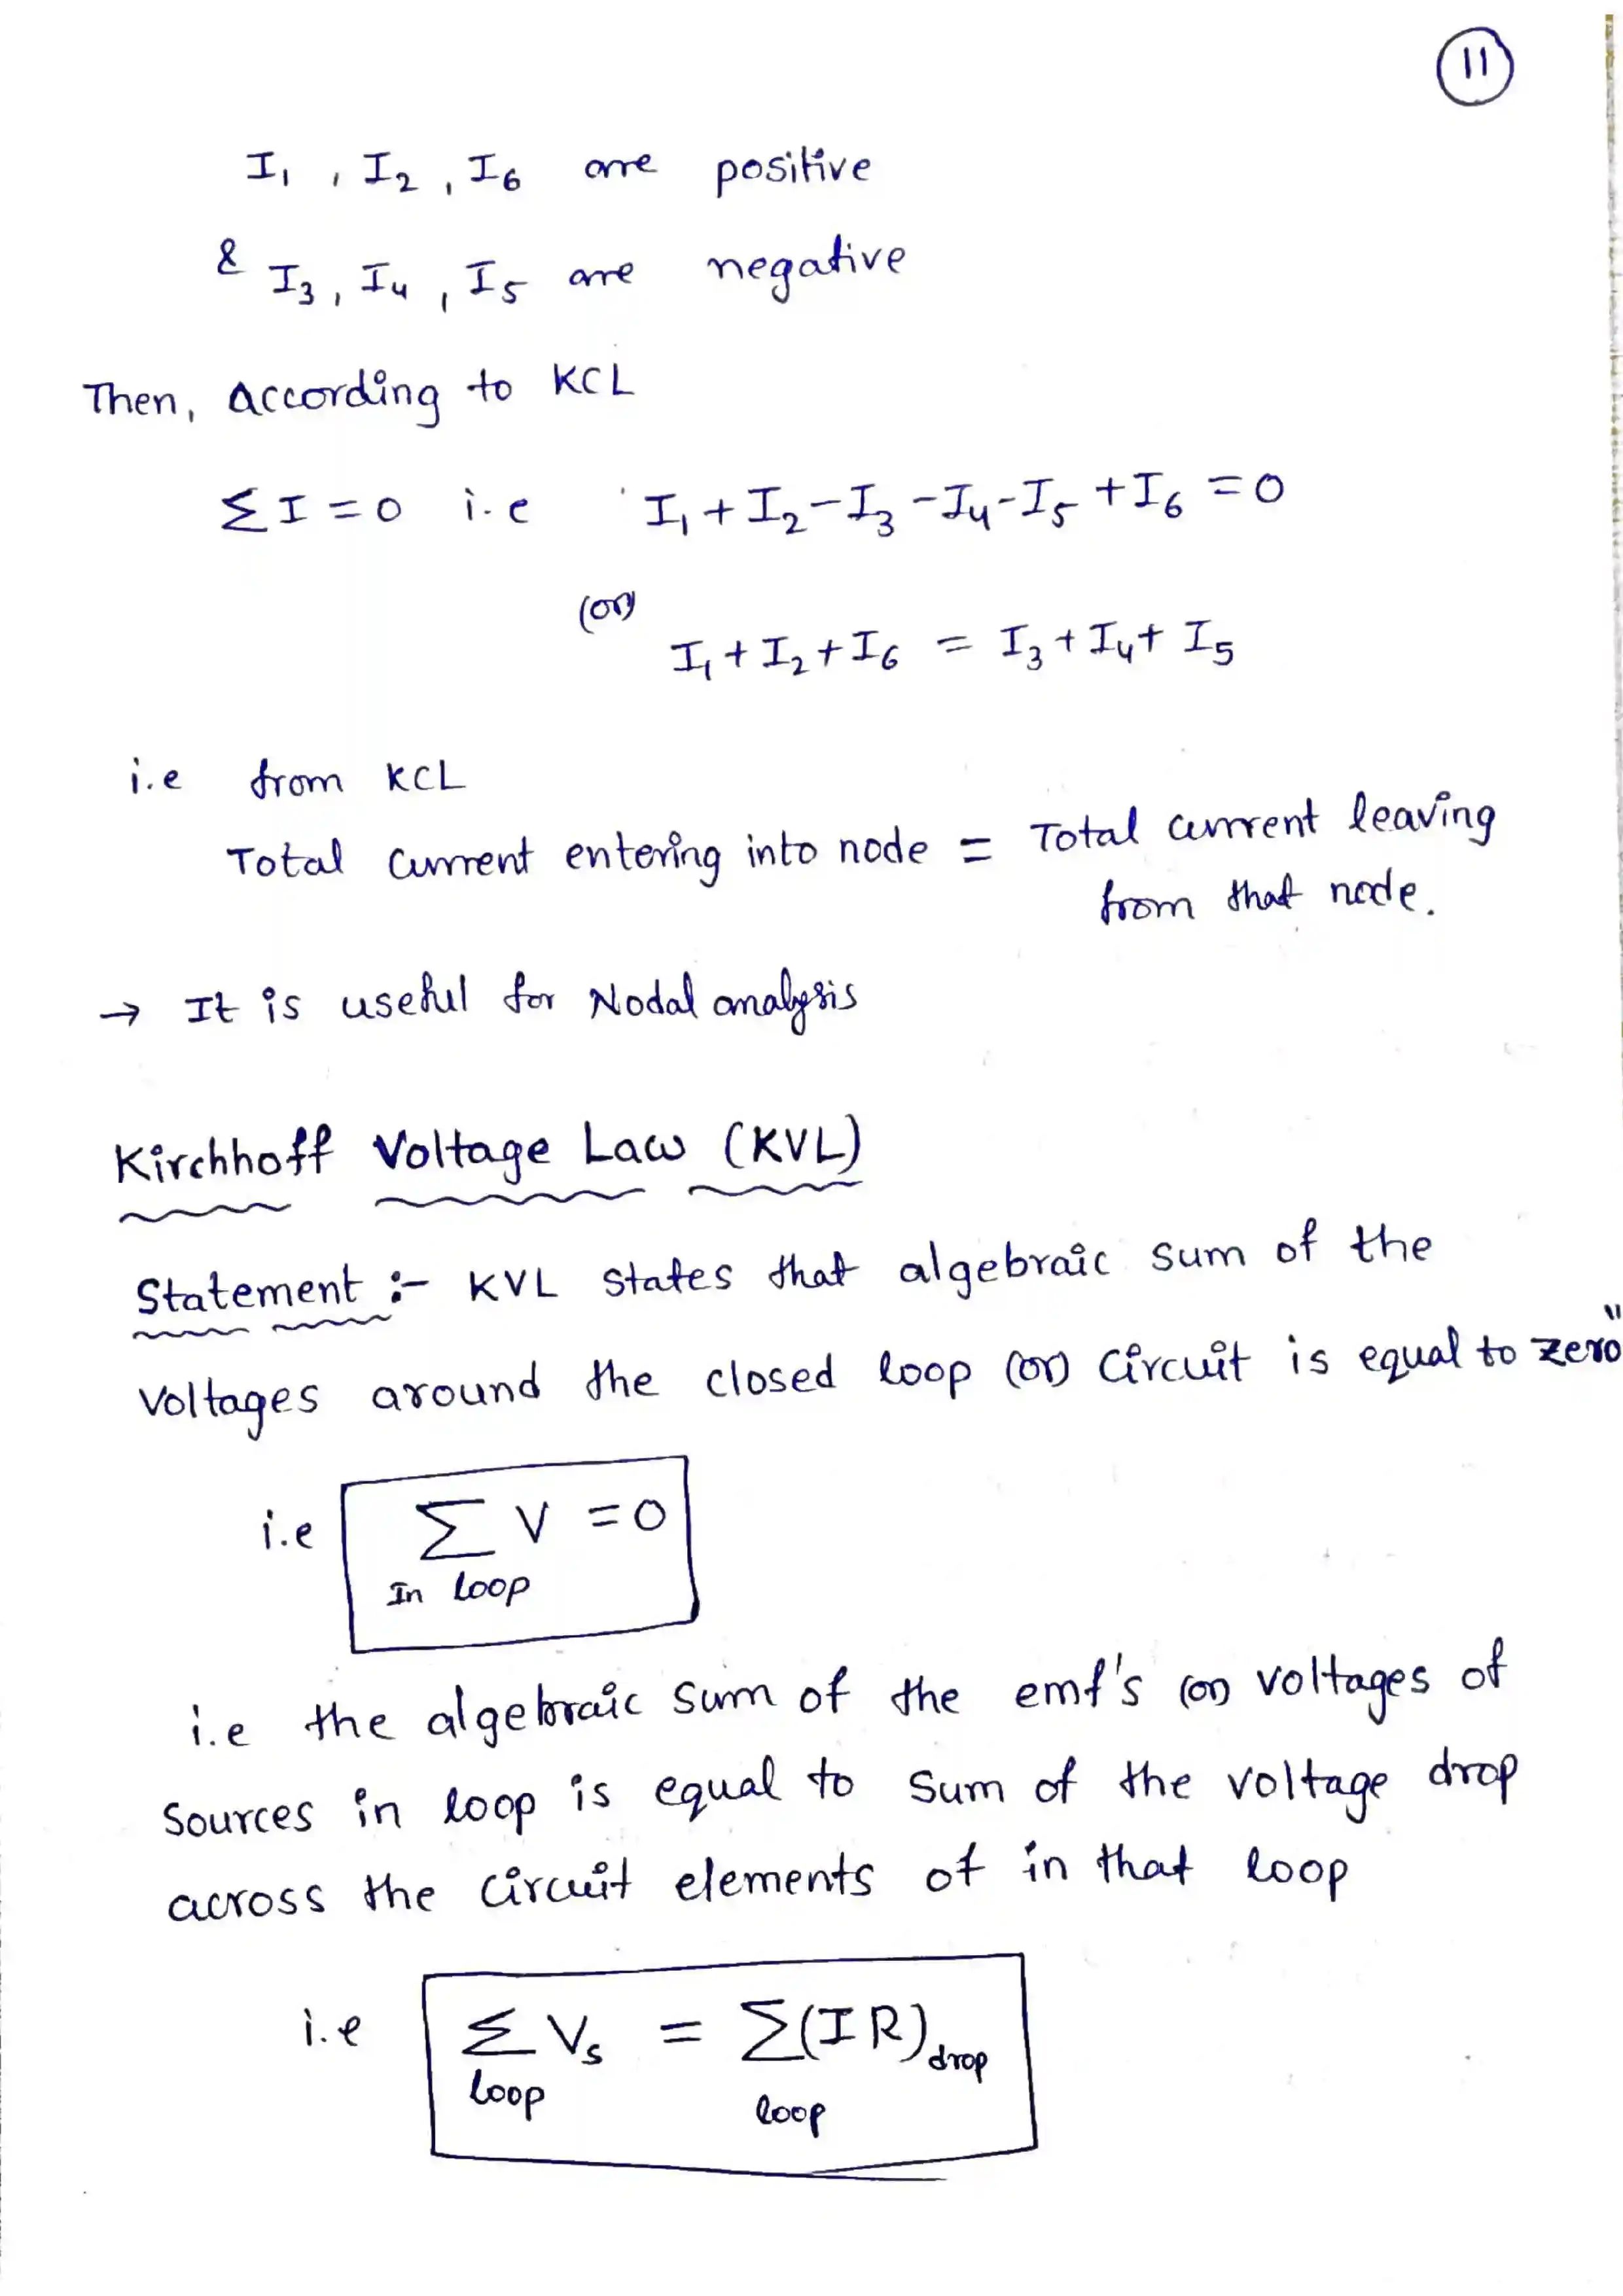 11
I₁, I₂, I₆ are positive
& I₃, I₄, I₅ are negative
Then, According to KCL
ΣI = 0 i.e I₁ + I₂ - I₃ - I₄ - I₅ + I₆ = 0
(or)
I₁ + I₂ + I₆ = I₃ + I₄ + I₅
i.e from KCL
Total current entering into node = Total current leaving
from that node.
→ It is useful for Nodal analysis
Kirchhoff Voltage Law (KVL)
Statement :- KVL states that algebraic sum of the
Voltages around the closed loop (or) circuit is equal to zero"
i.e Σ V = 0
In loop
i.e the algebraic sum of the emf's (or) voltages of
sources in loop is equal to sum of the voltage drop
across the circuit elements of in that loop
i.e Σ Vs = Σ(IR)drop
loop loop